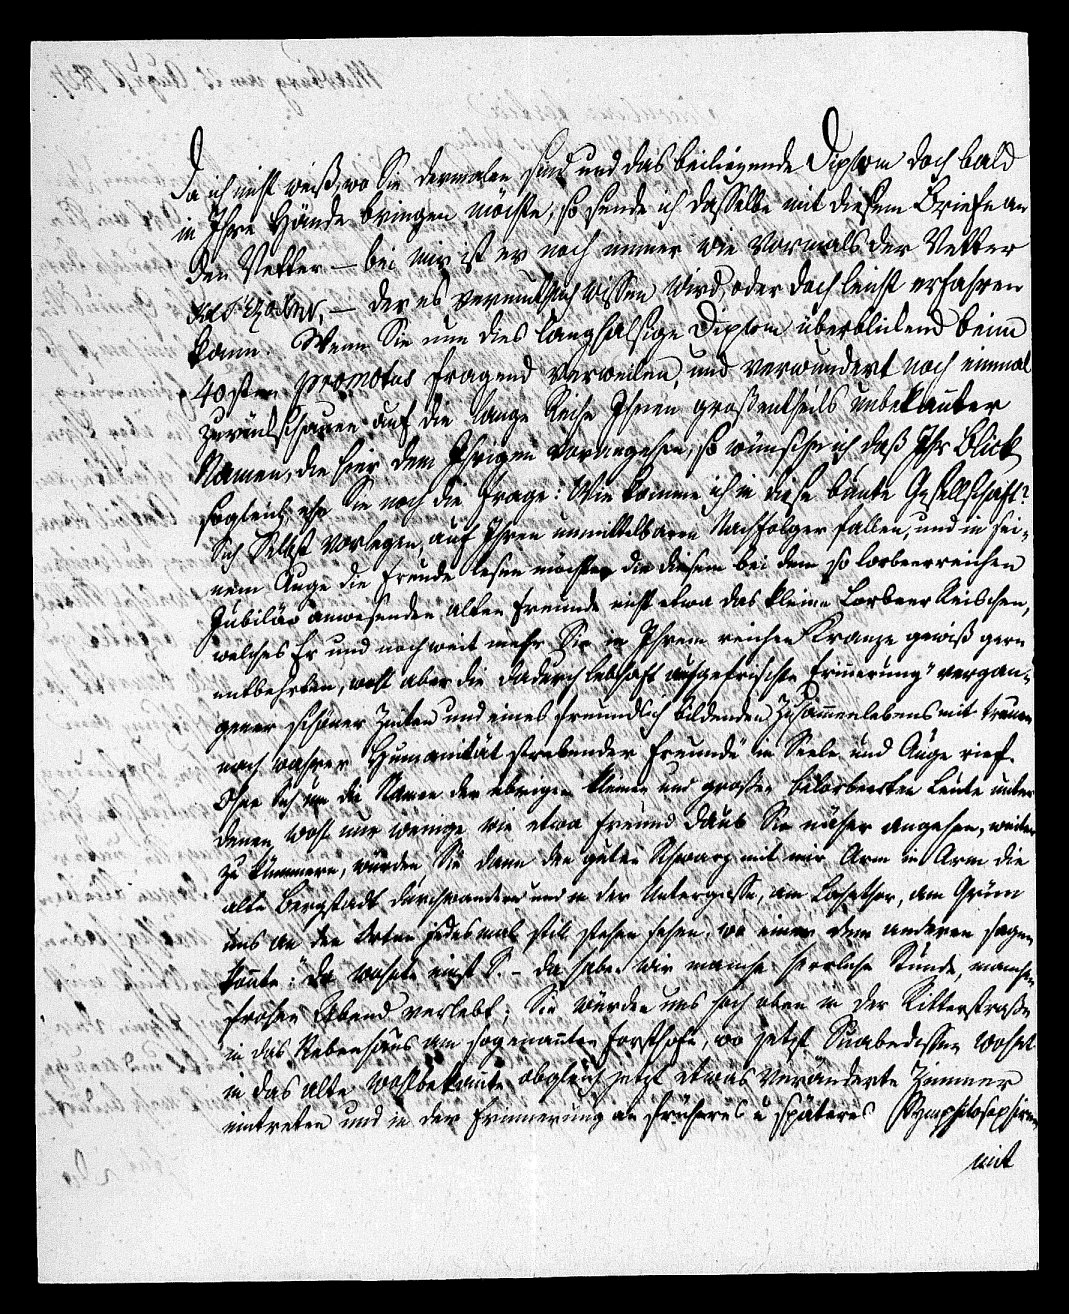 Da ich nicht weiß, wo Sie dermalen sind und das beiliegende Diplom doch bald
in Ihre Hände bringen möchte, so sende ich dasselbe mit diesem Briefe an
den Vetter – bei mir ist er noch immer wie vormals der Vetter
κατ' ἐξοχήν, – der es vermuthlich wissen wird, oder doch leicht erfahren
kann. Wenn Sie nun dies langhalsige Diplom überblickend beim
40sten promotus fragend verweilen, und verwundert noch einmal
zurückschauen auf die lange Reihe Ihnen großentheils unbekannter
Namen, die hier dem Ihrigen vorangehen, so wünsche ich daß Ihr Blick
sogleich ehe Sie noch die Frage: Wie komme ich in diese bunte Gesellschaft?
Sich Selbst vorlegen, auf Ihren unmittelbaren Nachfolger fallen, und in sei-
nem Auge die Freude lesen möchte, die diesem bei dem so lorbeerreichen
Jubiläo anwesenden alten Freunde nicht etwa das kleine Lorbeer Reischen,
welches Er und noch weit mehr Sie in Ihrem reichen Kranze gewiß gern
entbehrten, wohl aber die dadurch lebhaft aufgefrischte Erinnerung vergan-
gener schöner Zeiten und eines freundlich bildenden Zusammenlebens mit treuen
nach wahrer Humanität strebender Freunde in Seele und Auge rief.
Ohne Sich um die Namen der übrigen kleinen und großen belorbeerten Leute unter
denen wohl nur wenige wie etwa Freund Daub Sie näher angehen, weiter
zu kümmern, würden Sie dann den guten Schwarz mit mir Arm in Arm die
alte Bergstadt durchwandern und in der Untergasse, am Lahnthor, am Grün
uns an den Orten jedesmal still stehen sehen, wo einer dem anderen sagen
konnte: "da wohnte einst S. – da haben wir manche herrliche Stunde, manchen
frohen Abend verlebt; Sie würden uns hoch oben in der Ritterstraße
in das Nebenhaus am sogenannten Forsthofe, wo jetzt Suabedissen wohnt
in das alte wohlbekannte, obgleich jetzt etwas veränderte Zimmer
eintreten und in der Erinnerung an früheres u späteres Symphilosophiren
mit